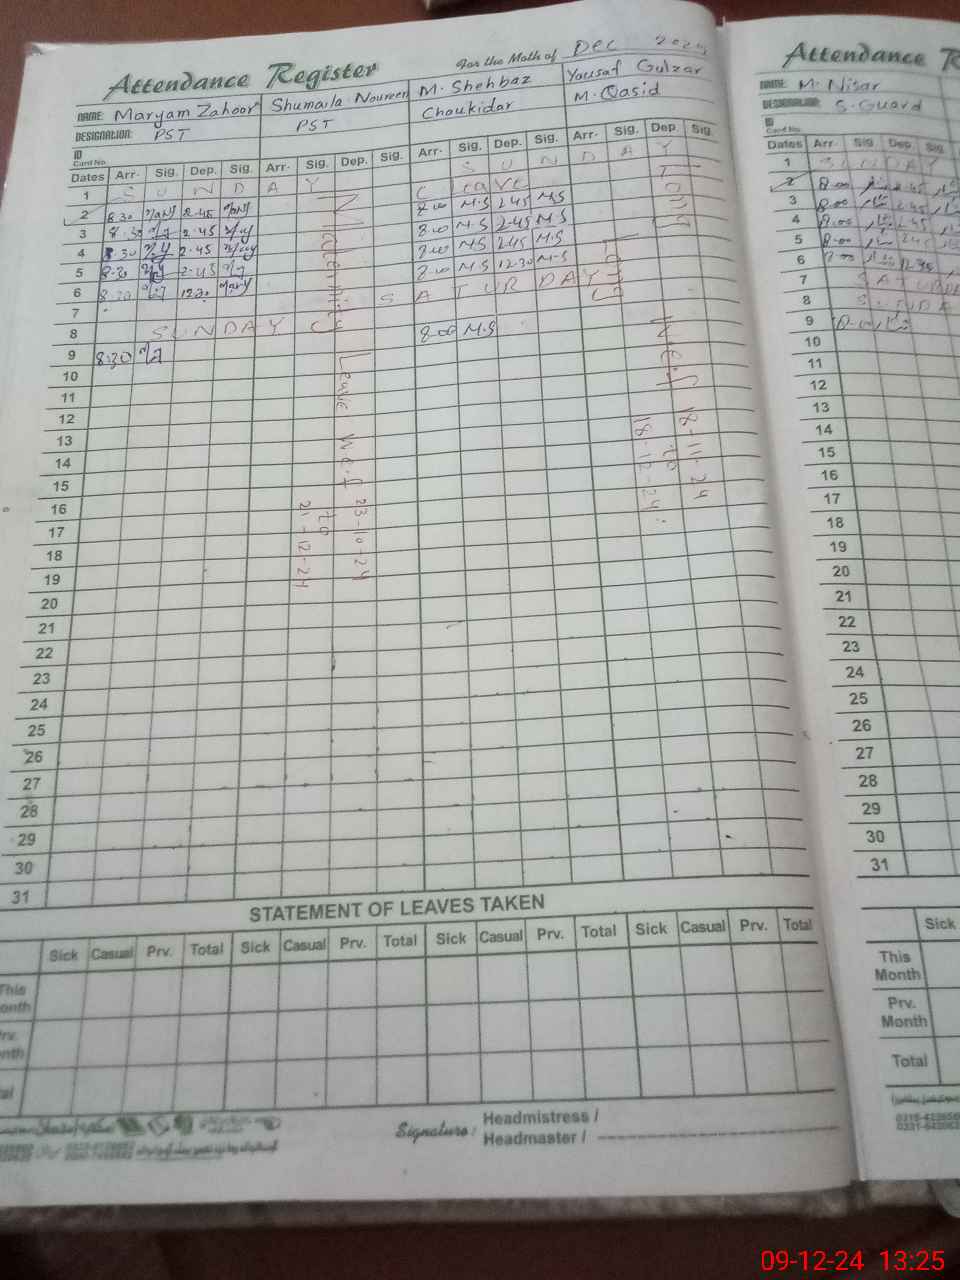 Attendance Register For the Moth of Dec 2024
NAME: Maryam Zahoor Shumaila Noureen M. Shehbaz Yousaf Gulzar
DESIGNATION: PST PST Choukidar M. Qasid
ID Card No.
Dates Arr. Sig. Dep. Sig. Arr. Sig. Dep. Sig. Arr. Sig. Dep. Sig. Arr. Sig. Dep. Sig.
1 S U N D A Y S U N D A Y
2 8.30 2.45 C Leave
3 8.30 2.45 8.00 M.S 2.45 M.S
4 8.30 2.45 8.00 M.S 2.45 M.S
5 8.30 2.45 8.00 M.S 2.45 M.S
6 8.30 12.30 8.00 M.S 12.30 M.S
7 S A T U R D A Y
8 S U N D A Y
9 8:30 8.00 M.S
10
11
12
13
14
15
16
17
18
19
20
21
22
23
24
25
26
27
28
29
30
31
Maternity Leave W.e.f 23-10-24
to
21-12-24
Long Leave W.e.f 18-11-24
to
18-12-24
STATEMENT OF LEAVES TAKEN
Sick Casual Prv. Total Sick Casual Prv. Total Sick Casual Prv. Total Sick Casual Prv. Total
This
onth
rv.
nth
tal
Signature: Headmistress /
Headmaster /
Attendance R
NAME: M. Nisar
DESIGNATION: S. Guard
ID Card No.
Dates Arr. Sig. Dep. Sig.
1 SUNDAY
2 8.00 2.45
3 8.00 2.45
4 8.00 2.45
5 8.00 2.45
6 8.00 12.35
7 SATURDA
8 SUNDA
9 8.00
10
11
12
13
14
15
16
17
18
19
20
21
22
23
24
25
26
27
28
29
30
31
Sick
This
Month
Prv.
Month
Total
09-12-24 13:25